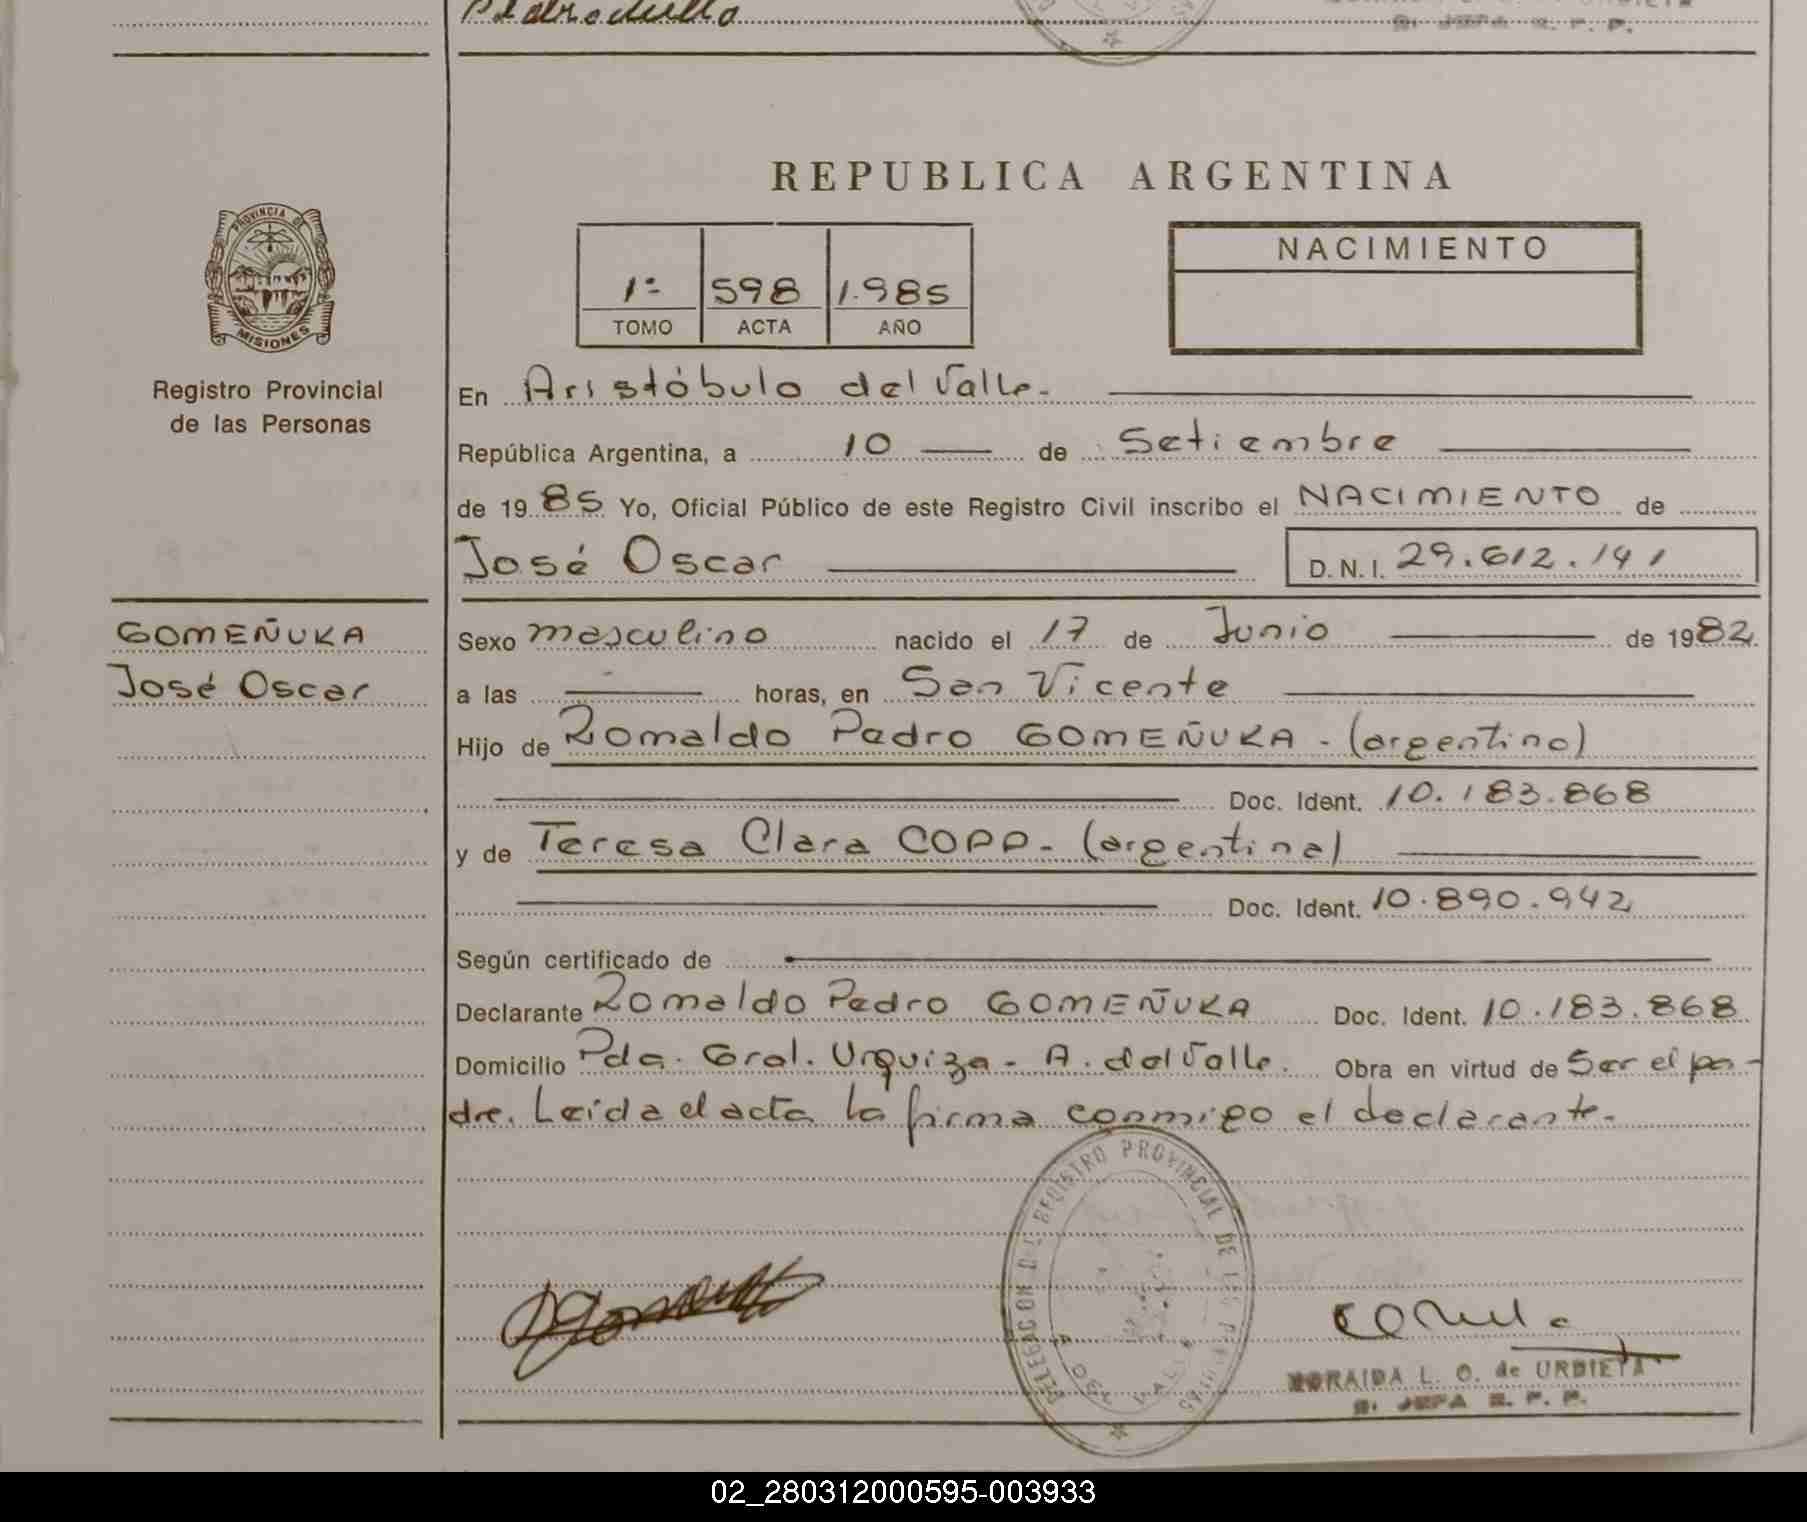 REPUBLICA ARGENTINA
PROVINCIA DE
MISIONES
Registro Provincial
de las Personas
1º 598 1.985
TOMO ACTA AÑO
NACIMIENTO
En Aristóbulo del Valle.
República Argentina, a 10 de Setiembre
de 1985 Yo, Oficial Público de este Registro Civil inscribo el NACIMIENTO de
José Oscar D.N.I. 29.612.141
GOMEÑUKA
José Oscar
Sexo masculino nacido el 17 de Junio de 1982
a las horas, en San Vicente
Hijo de Romaldo Pedro GOMEÑUKA - (argentino)
Doc. Ident. 10.183.868
y de Teresa Clara COPP - (argentina)
Doc. Ident. 10.890.942
Según certificado de
Declarante Romaldo Pedro GOMEÑUKA Doc. Ident. 10.183.868
Domicilio Pda. Gral. Urquiza - A. del Valle. Obra en virtud de Ser el pa-
dre. Leída el acta la firma conmigo el declarante.
REGISTRO PROVINCIAL DE
A. DEL VALLE
L. O. de URDIETA
JEFA R. P. P.
02_280312000595-003933